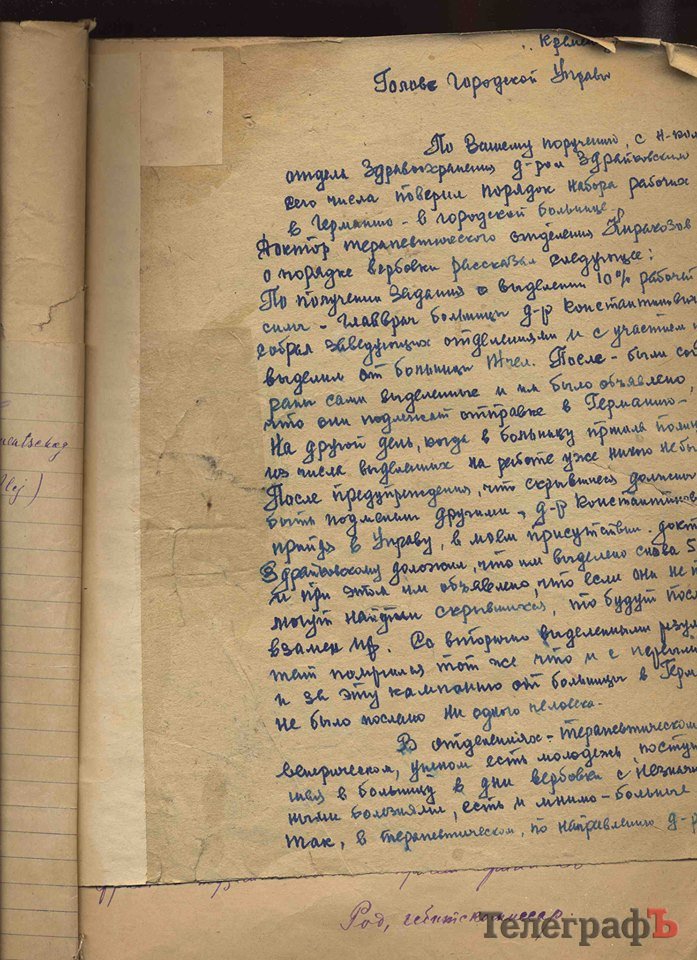 г. Кремен
Голове Городской Управы
По Вашему поручению, с н-ком
отдела Здравоохранения д-ром Здрайковским
сего числа поверил порядок набора рабочих
в Германию - в городской больнице.
Доктор терапевтического отделения Киракозов
о порядке вербовки рассказал следующее:
По получении задания о выделении 10% рабочей
силы - Главврач больницы д-р Константинович
собрал заведующих отделениями и с участием
выделил от больницы чел. После - были соб
раны сами выделенные и им было объявлено,
что они подлежат отправке в Германию -
На другой день, когда в больницу пришла поли
из числа выделенных на работе уже никого не бы
После предупреждения, что скрывшиеся должны
быть подменены другими, д-р Константинов
прийдя в Управу, в моем присутствии доктору
Здрайковскому доложил, что им выделено снова 5
и при этом им объявлено, что если они не п
могут найти скрывшихся, то будут посл
взамен их. Со вторично выделенными резул
тат получился тот же что и с первыми
и за эту кампанию от больницы в Герм
не было послано ни одного человека.
В отделениях - терапевтическом
венерическом, ушном есть молодежь поступи
шая в больницу в дни вербовки с незначи
ными болезнями, есть и мнимо-больные
Так, в терапевтическом, по направлению д-р
Род, гебитскомиссар.
mentschug
lej)
ТелеграфЪ